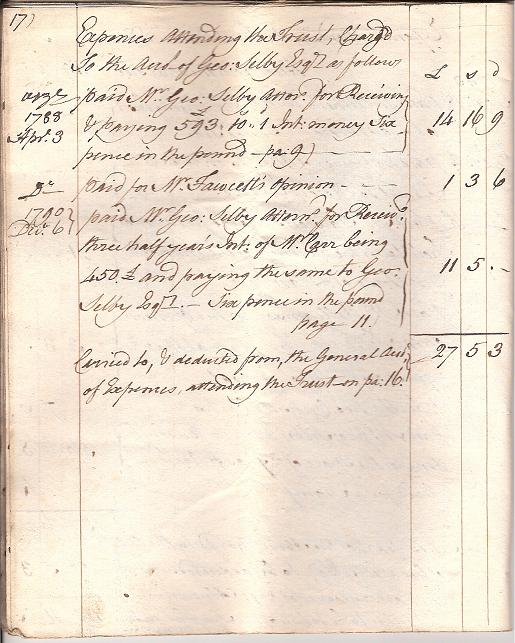 17)
Expences Attending the Trust, Charg'd
To the Acct of Geo: Selby Esqr as follows
£ s d
1788 Apr. 3
paid Mr Geo: Selby Attorn. for Receiving
& paying 593£. 10. 1 Int: money Six
pence in the pound - pa: 9) 14 16 9
Do paid for Mr Fawcett's opinion - - 1 3 6
1790 Decr 6
paid Mr Geo: Selby Attorn. for Receivg
three half year's Int: of Mr Carr being
450£ and paying the same to Geo:
Selby Esqr. - Six pence in the pound 11 5 -
page 11.
27 5 3
Carried to, & deducted from, the General Acct
of Expences, attending the Trust on pa: 16.